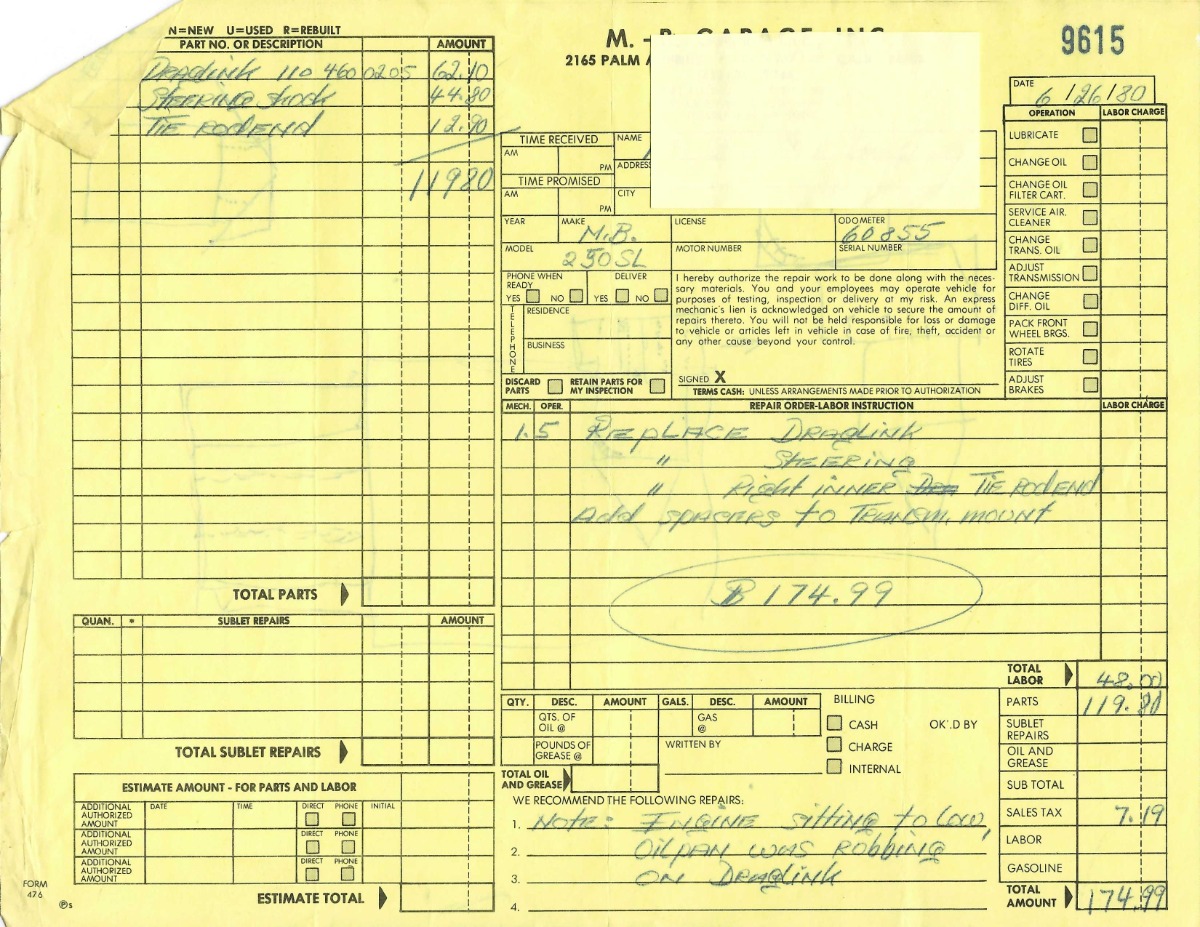 N=NEW U=USED R=REBUILT
PART NO. OR DESCRIPTION AMOUNT
DRAGLINK 110 460 0205 62.10
STEERING SHOCK 44.80
TIE ROD END 12.90
11980
TOTAL PARTS
QUAN. * SUBLET REPAIRS AMOUNT
TOTAL SUBLET REPAIRS
ESTIMATE AMOUNT - FOR PARTS AND LABOR
ADDITIONAL AUTHORIZED AMOUNT DATE TIME DIRECT PHONE INITIAL
ADDITIONAL AUTHORIZED AMOUNT DIRECT PHONE
ADDITIONAL AUTHORIZED AMOUNT DIRECT PHONE
ESTIMATE TOTAL
FORM 476
Ps
M.
2165 PALM
9615
DATE
6/26/80
TIME RECEIVED NAME
AM PM ADDRESS
TIME PROMISED
AM PM CITY
YEAR MAKE LICENSE ODOMETER
M.B. 60855
MODEL MOTOR NUMBER SERIAL NUMBER
250SL
PHONE WHEN READY DELIVER
YES NO YES NO
TELEPHONE
RESIDENCE
BUSINESS
DISCARD PARTS RETAIN PARTS FOR MY INSPECTION
I hereby authorize the repair work to be done along with the neces-
sary materials. You and your employees may operate vehicle for
purposes of testing, inspection or delivery at my risk. An express
mechanic's lien is acknowledged on vehicle to secure the amount of
repairs thereto. You will not be held responsible for loss or damage
to vehicle or articles left in vehicle in case of fire, theft, accident or
any other cause beyond your control.
SIGNED X
TERMS CASH: UNLESS ARRANGEMENTS MADE PRIOR TO AUTHORIZATION
OPERATION LABOR CHARGE
LUBRICATE
CHANGE OIL
CHANGE OIL FILTER CART.
SERVICE AIR. CLEANER
CHANGE TRANS. OIL
ADJUST TRANSMISSION
CHANGE DIFF. OIL
PACK FRONT WHEEL BRGS.
ROTATE TIRES
ADJUST BRAKES
MECH. OPER. REPAIR ORDER-LABOR INSTRUCTION LABOR CHARGE
1.5 REPLACE DRAGLINK
" STEERING
" Right INNER TIE ROD END
Add SPACERS to TRANSM. MOUNT
$174.99
TOTAL LABOR 48.00
PARTS 119.80
SUBLET REPAIRS
OIL AND GREASE
SUB TOTAL
SALES TAX 7.19
LABOR
GASOLINE
TOTAL AMOUNT 174.99
QTY. DESC. AMOUNT GALS. DESC. AMOUNT
QTS. OF OIL @ GAS @
POUNDS OF GREASE @ WRITTEN BY
TOTAL OIL AND GREASE
BILLING
CASH OK'.D BY
CHARGE
INTERNAL
WE RECOMMEND THE FOLLOWING REPAIRS:
1. Note: ENGINE sitting to low,
2. Oilpan was Robbing
3. ON DRAGLINK
4.